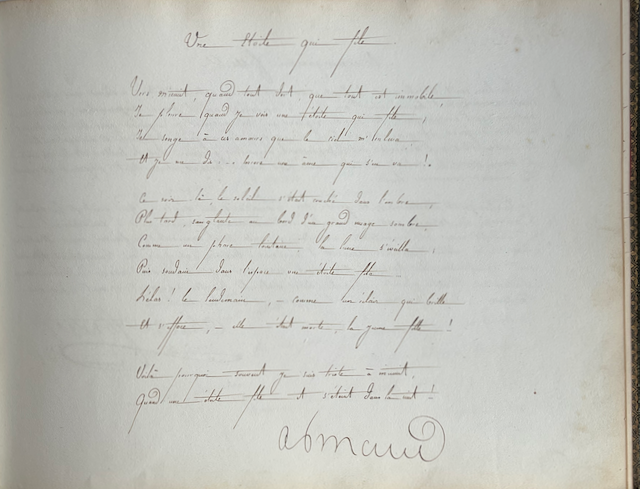 Une étoile qui file
Vers minuit, quand tout dort, que tout est immobile,
Je pleure quand je vois une étoile qui file,
Je songe à ces amours que le ciel m'
Et je me dis... une âme qui s'en va !..
Ce soir là, le soleil s'était couché dans l'ombre,
Plus tard, sanglante au bord d'un grand nuage sombre,
Comme un phare lointain, la lune s'
Puis soudain dans l'espace une étoile fila
Hélas ! le lendemain, – comme un éclair qui brille
Et s'efface, – elle était morte, la jeune fille !
Voilà pourquoi souvent je suis triste à minuit,
Quand une étoile file et s'éteint dans la nuit !